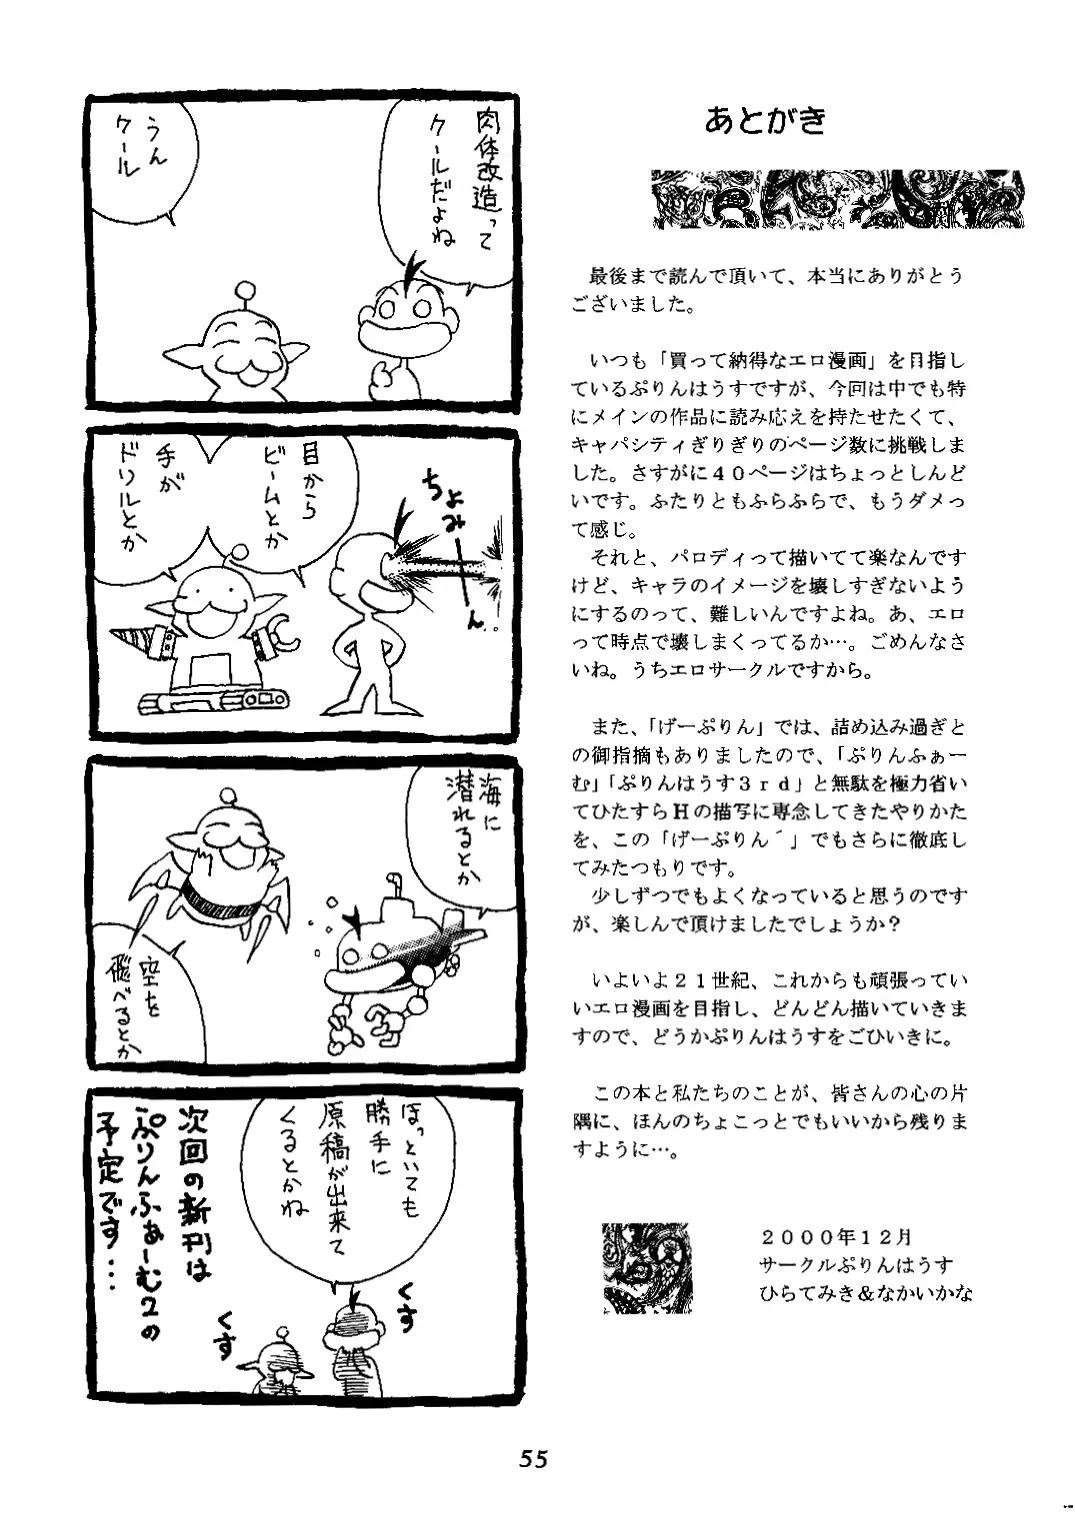 肉体改造って
クールだよね
うん
クール
目から
ビームとか
手が
ドリルとか
ちょみ
ん..
海に
潜れるとか
空を
飛べるとか
ほっといても
勝手に
原稿が出来て
くるとかね
くす
くす
次回の新刊は
ぷりんふぁーむ2の
予定です...
あとがき
最後まで読んで頂いて、本当にありがとう
ございました。
いつも「買って納得なエロ漫画」を目指し
ているぷりんはうすですが、今回は中でも特
にメインの作品に読み応えを持たせたくて、
キャパシティぎりぎりのページ数に挑戦しま
した。さすがに40ページはちょっとしんど
いです。ふたりともふらふらで、もうダメっ
て感じ。
それと、パロディって描いてて楽なんです
けど、キャラのイメージを壊しすぎないよう
にするのって、難しいんですよね。あ、エロ
って時点で壊しまくってるか…。ごめんなさ
いね。うちエロサークルですから。
また、「げーぷりん」では、詰め込み過ぎと
の御指摘もありましたので、「ぷりんふぁー
む」「ぷりんはうす3rd」と無駄を極力省い
てひたすらHの描写に専念してきたやりかた
を、この「げーぷりん´」でもさらに徹底し
てみたつもりです。
少しずつでもよくなっていると思うのです
が、楽しんで頂けましたでしょうか?
いよいよ21世紀、これからも頑張ってい
いエロ漫画を目指し、どんどん描いていきま
すので、どうかぷりんはうすをごひいきに。
この本と私たちのことが、皆さんの心の片
隅に、ほんのちょこっとでもいいから残りま
すように…。
2000年12月
サークルぷりんはうす
ひらてみき&なかいかな
55